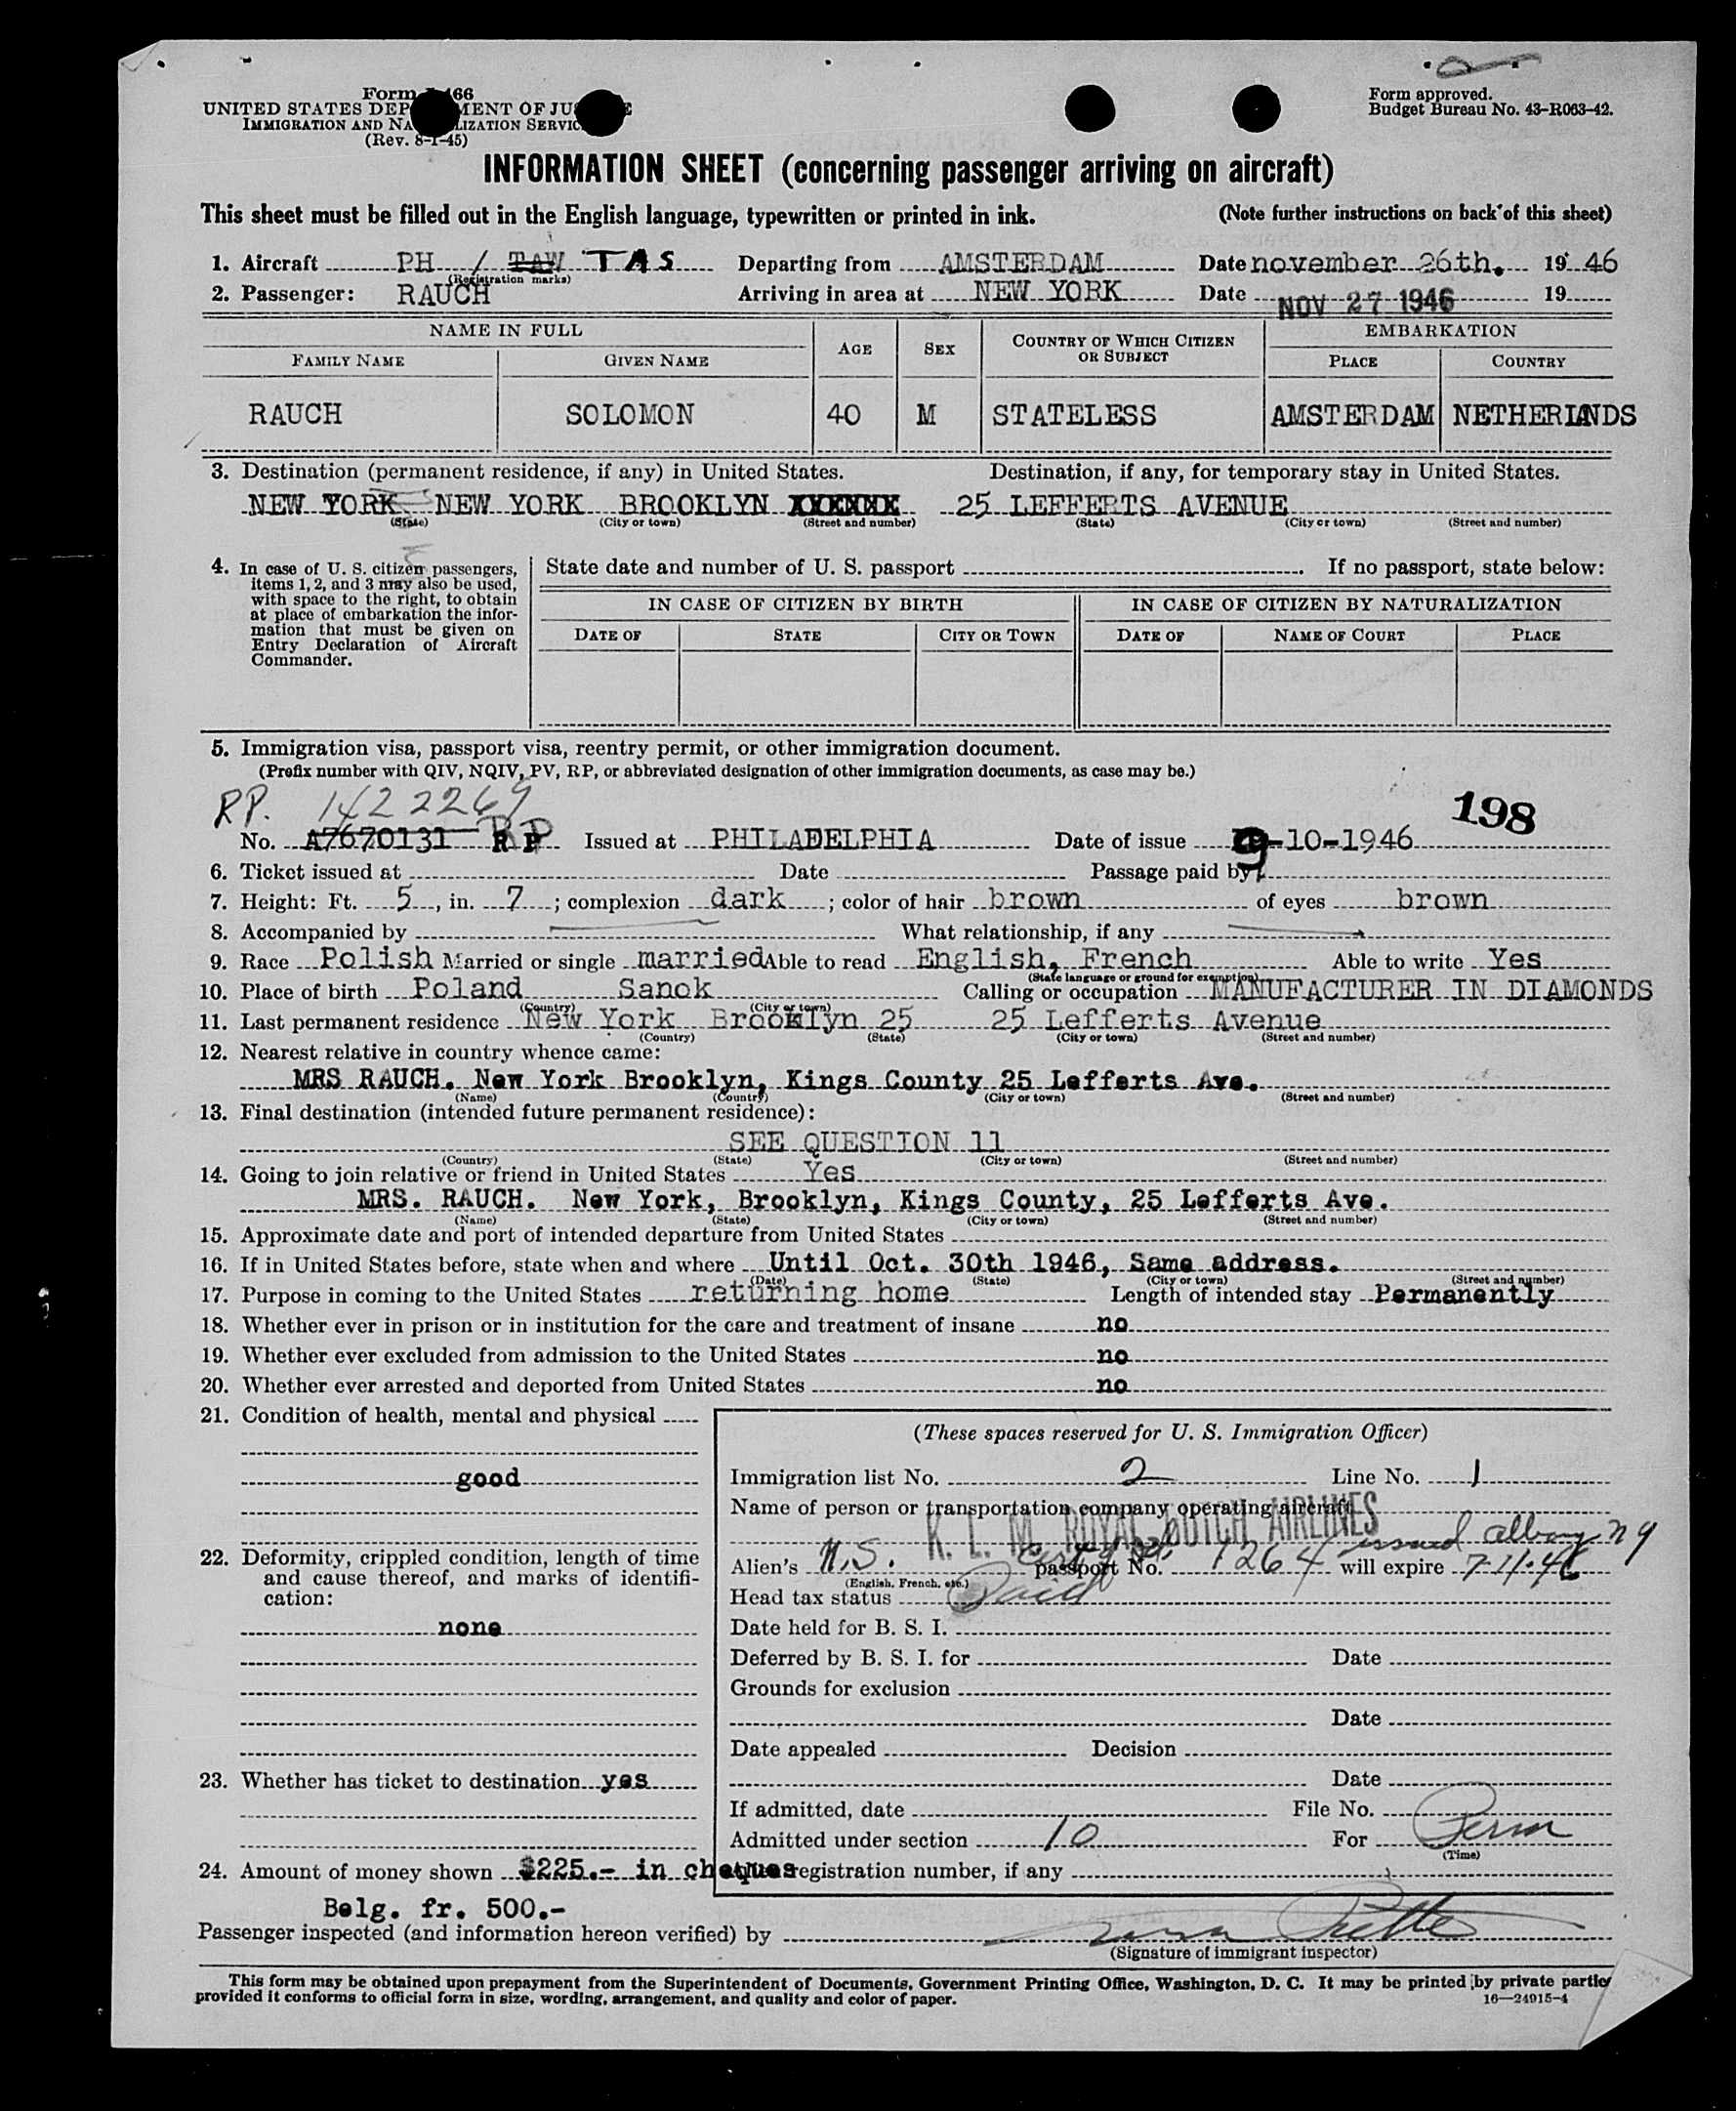 Form I-466
UNITED STATES DEPARTMENT OF JUSTICE
IMMIGRATION AND NATURALIZATION SERVICE
(Rev. 8-1-45)
Form approved.
Budget Bureau No. 43-R063-42.
INFORMATION SHEET (concerning passenger arriving on aircraft)
This sheet must be filled out in the English language, typewritten or printed in ink. (Note further instructions on back of this sheet)
1. Aircraft PH / TAW TAS Departing from AMSTERDAM Date november 26th. 19 46
(Registration marks)
2. Passenger: RAUCH Arriving in area at NEW YORK Date NOV 27 1946 19
NAME IN FULL AGE SEX COUNTRY OF WHICH CITIZEN OR SUBJECT EMBARKATION
FAMILY NAME GIVEN NAME PLACE COUNTRY
RAUCH SOLOMON 40 M STATELESS AMSTERDAM NETHERLANDS
3. Destination (permanent residence, if any) in United States. Destination, if any, for temporary stay in United States.
NEW YORK NEW YORK BROOKLYN XXXXXX 25 LEFFERTS AVENUE
(State) (City or town) (Street and number) (State) (City or town) (Street and number)
4. In case of U. S. citizen passengers, items 1, 2, and 3 may also be used, with space to the right, to obtain at place of embarkation the information that must be given on Entry Declaration of Aircraft Commander.
State date and number of U. S. passport If no passport, state below:
IN CASE OF CITIZEN BY BIRTH IN CASE OF CITIZEN BY NATURALIZATION
DATE OF STATE CITY OR TOWN DATE OF NAME OF COURT PLACE
5. Immigration visa, passport visa, reentry permit, or other immigration document.
(Prefix number with QIV, NQIV, PV, RP, or abbreviated designation of other immigration documents, as case may be.)
RP. 1422269
198
No. A7670131 R P RP Issued at PHILADELPHIA Date of issue 9-10-1946
6. Ticket issued at Date Passage paid by
7. Height: Ft. 5, in. 7; complexion dark; color of hair brown of eyes brown
8. Accompanied by What relationship, if any
9. Race Polish Married or single married Able to read English, French Able to write Yes
(State language or ground for exemption)
10. Place of birth Poland Sanok Calling or occupation MANUFACTURER IN DIAMONDS
(Country) (City or town)
11. Last permanent residence New York Brooklyn 25 25 Lefferts Avenue
(Country) (State) (City or town) (Street and number)
12. Nearest relative in country whence came:
MRS RAUCH. New York Brooklyn, Kings County 25 Lefferts Ave.
(Name) (Country) (City or town) (Street and number)
13. Final destination (intended future permanent residence):
SEE QUESTION 11
(Country) (State) (City or town) (Street and number)
14. Going to join relative or friend in United States Yes
MRS. RAUCH. New York, Brooklyn, Kings County, 25 Lefferts Ave.
(Name) (State) (City or town) (Street and number)
15. Approximate date and port of intended departure from United States
16. If in United States before, state when and where Until Oct. 30th 1946, Same address.
(Date) (State) (City or town) (Street and number)
17. Purpose in coming to the United States returning home Length of intended stay Permanently
18. Whether ever in prison or in institution for the care and treatment of insane no
19. Whether ever excluded from admission to the United States no
20. Whether ever arrested and deported from United States no
21. Condition of health, mental and physical
good
22. Deformity, crippled condition, length of time and cause thereof, and marks of identification:
none
23. Whether has ticket to destination yes
24. Amount of money shown $225.- in cheques
Belg. fr. 500.-
(These spaces reserved for U. S. Immigration Officer)
Immigration list No. 2 Line No. 1
Name of person or transportation company operating aircraft
K. L. M. ROYAL DUTCH AIRLINES
issued albany ny
Alien's passport No. 1264 will expire
(English, French, etc.)
Head tax status Paid
Date held for B. S. I.
Deferred by B. S. I. for Date
Grounds for exclusion
Date
Date appealed Decision
Date
If admitted, date File No.
Admitted under section 10 For Perm
(Time)
Alien registration number, if any
Passenger inspected (and information hereon verified) by
(Signature of immigrant inspector)
This form may be obtained upon prepayment from the Superintendent of Documents, Government Printing Office, Washington, D. C. It may be printed by private parties
provided it conforms to official form in size, wording, arrangement, and quality and color of paper.
16—24915-4